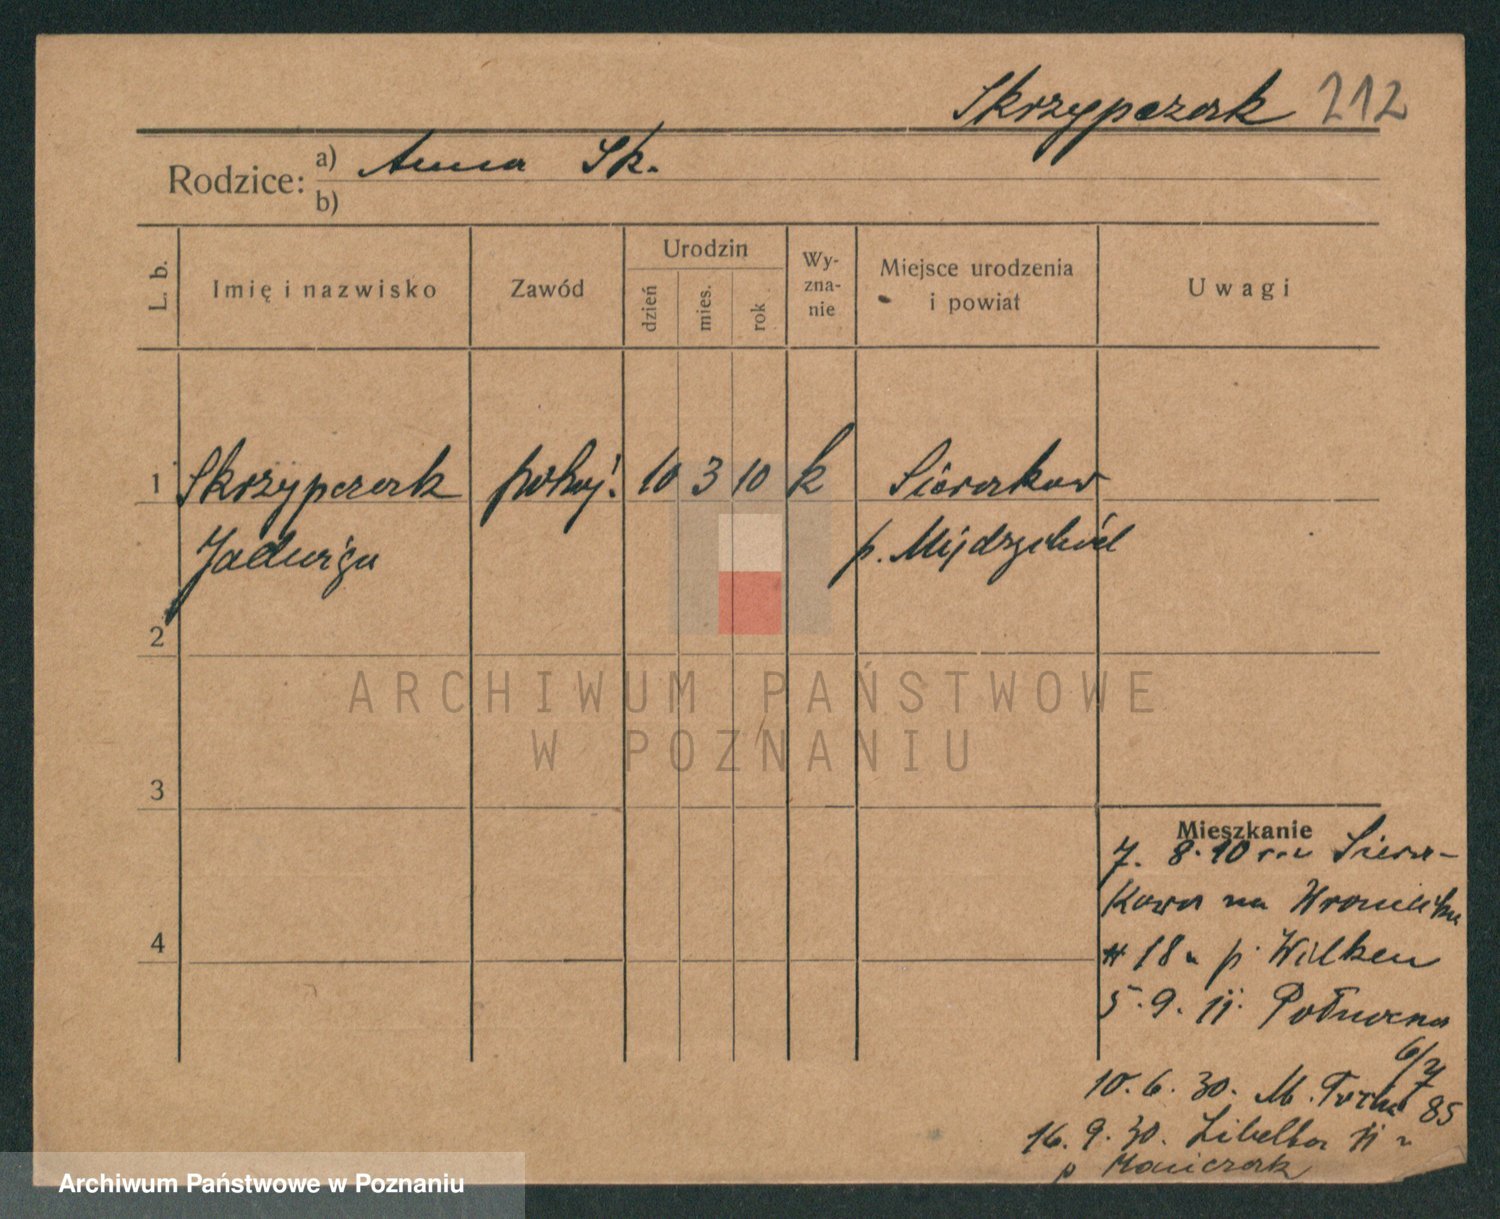 Skrzypczak 212
Rodzice: a) Anna Sk.
b)
L. b.
Imię i nazwisko
Zawód
Urodzin
dzień
mies.
rok
Wy-
zna-
nie
Miejsce urodzenia
i powiat
Uwagi
1 Skrzypczak pokoj. 10 3 10 k Sieraków
Jadwiga p. Międzychód
2
3
4
Mieszkanie
7. 8. 10 Siera-
kowa na
18 p. Wilken
5. 9. Północna
6/7
10. 6. 30. M. Focha 85
16. 9. 30. Libelta
p
ARCHIWUM PAŃSTWOWE
W POZNANIU
Archiwum Państwowe w Poznaniu